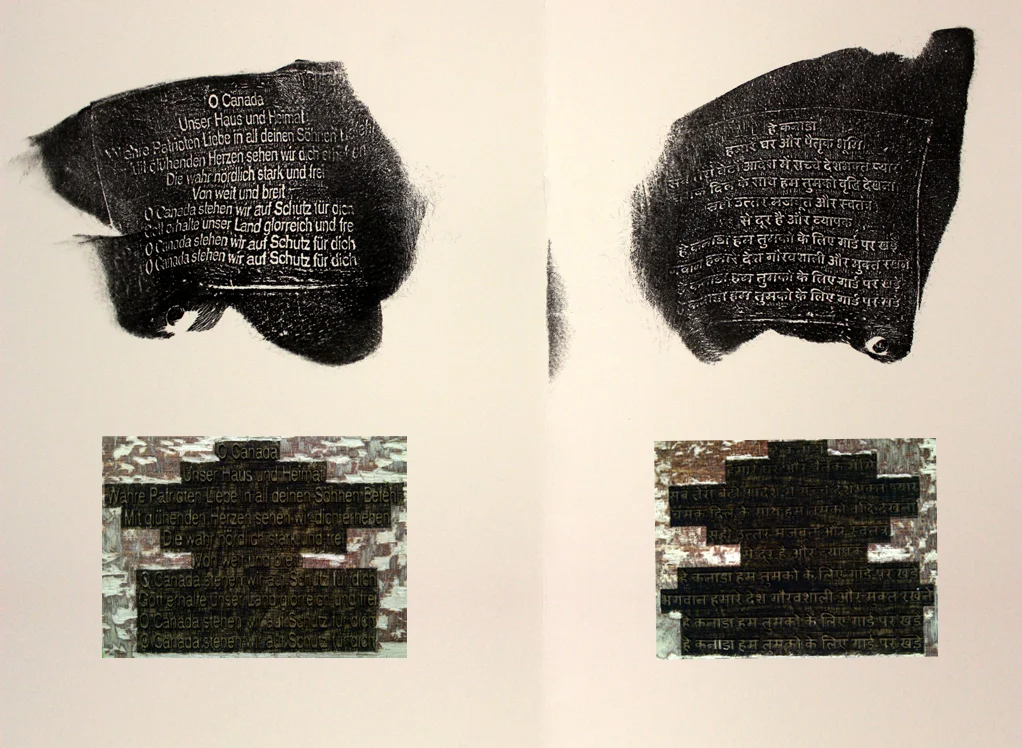 O Canada
Unser Haus und Heimat
Wahre Patrioten Liebe in all deinen Söhnen
Mit glühenden Herzen sehen wir dich
Die wahr nördlich stark und frei
Von weit und breit
O Canada stehen wir auf Schutz für dich
Gott erhalte unser Land glorreich und fre
O Canada stehen wir auf Schutz für dich
O Canada stehen wir auf Schutz für dich
हे कनाडा
हमारे घर और पैतृक भूमि
सच्चे देशभक्त प्यार
दिल के साथ हम तुमको वृद्धि देखना
उत्तर मजबूत और स्वतंत्र
से दूर है और व्यापक
हे कनाडा हम तुमको के लिए गार्ड पर खड़े
भगवान हमारे देश गौरवशाली और मुक्त रखने
हे कनाडा हम तुमको के लिए गार्ड पर खड़े
हे कनाडा हम तुमको के लिए गार्ड पर खड़े
O Canada
Unser Haus und Heimat
Wahre Patrioten Liebe in all deinen Söhnen Befehl
Mit glühenden Herzen sehen wir dich erheben
Die wahr nördlich stark und frei
Von weit und breit
O Canada stehen wir auf Schutz für dich
Gott erhalte unser Land glorreich und frei
O Canada stehen wir auf Schutz für dich
O Canada stehen wir auf Schutz für dich
हमारे घर और पैतृक भूमि
सब तेरी बेटों आदेश में सच्चे देशभक्त प्यार
चमक दिल के साथ हम तुमको वृद्धि देखना
उत्तर मजबूत और स्वतंत्र
से दूर है और व्यापक
हे कनाडा हम तुमको के लिए गार्ड पर खड़े
भगवान हमारे देश गौरवशाली और मुक्त रखने
हे कनाडा हम तुमको के लिए गार्ड पर खड़े
हे कनाडा हम तुमको के लिए गार्ड पर खड़े